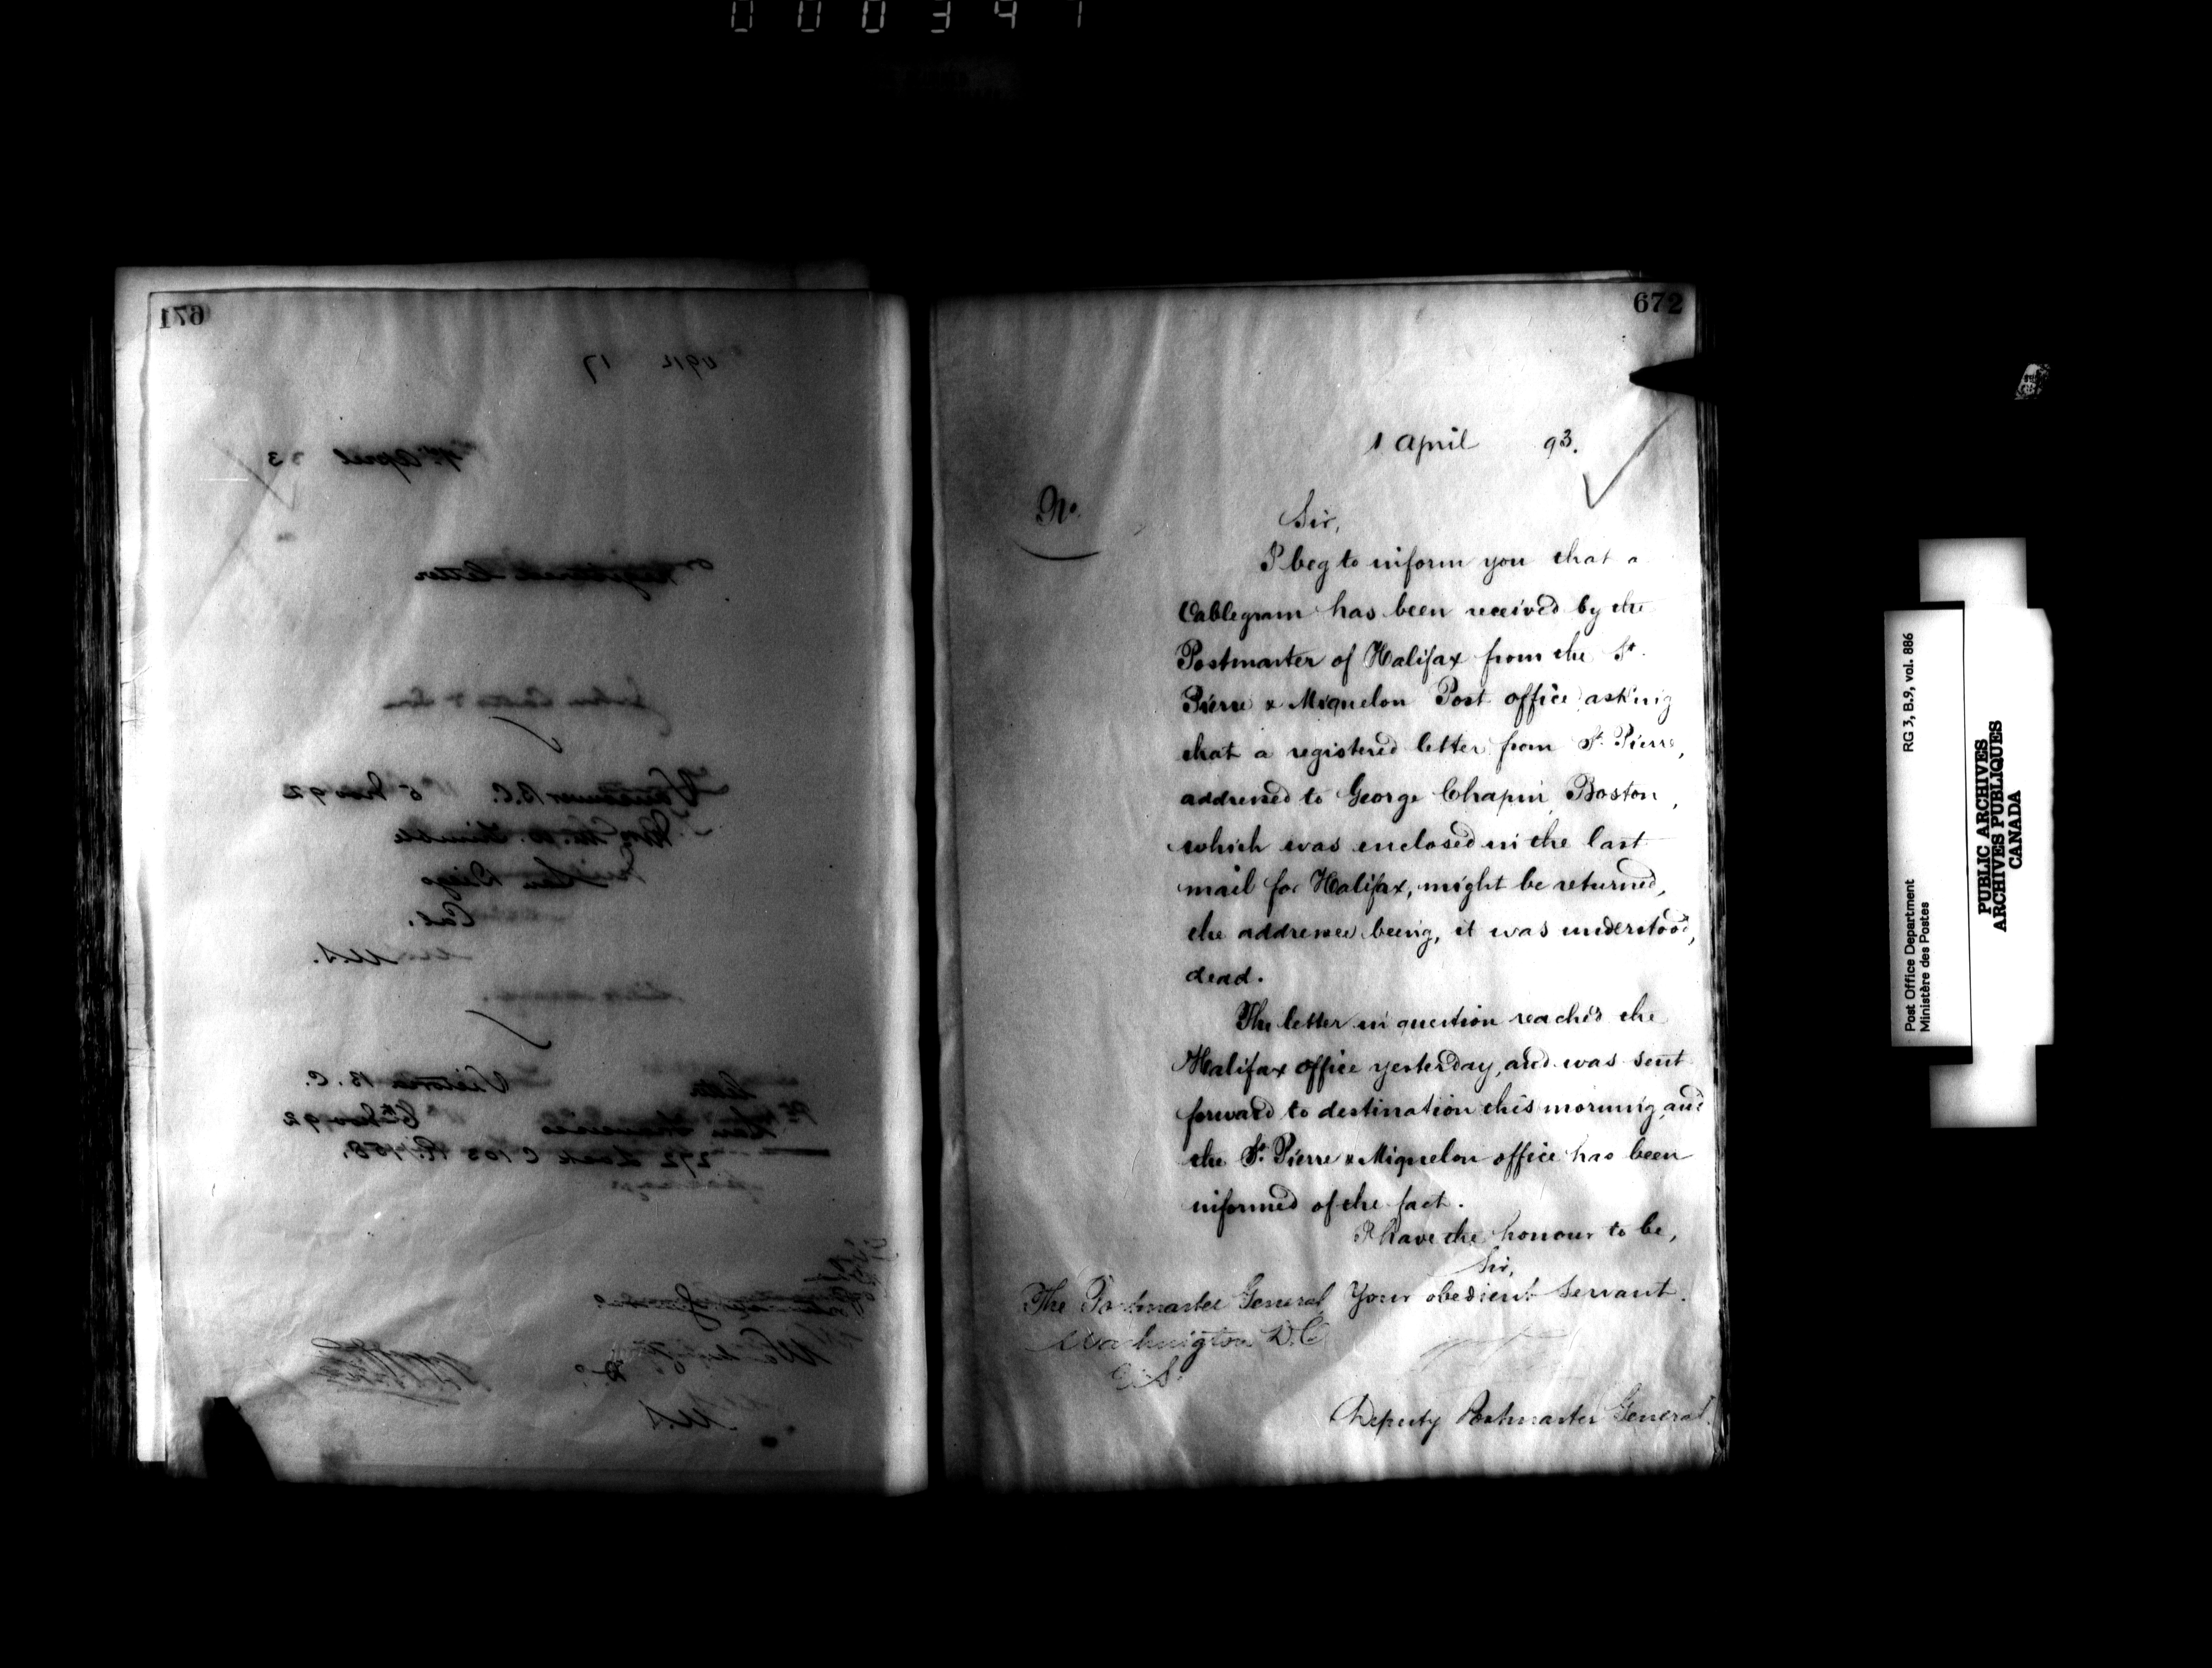 000347
671
17
1st April 93
Registered Letter
Vancouver B.C. 5 Nov 92
San Diego
Cal.
U.S.
Victoria B.C.
6th Nov 92
272 Lock C 103 R. 158.
Washington
D.C.
U.S
672
1 April 93.
No.
Sir,
I beg to inform you that a
Cablegram has been received by the
Postmaster of Halifax from the St.
Pierre & Miquelon Post office asking
that a registered letter from St. Pierre,
addressed to George Chapin, Boston,
which was enclosed in the last
mail for Halifax, might be returned,
the addressee being, it was understood,
dead.
The letter in question reached the
Halifax office yesterday, and was sent
forward to destination this morning, and
the St. Pierre & Miquelon office has been
informed of the fact.
I have the honour to be,
Sir,
The Postmaster General Your obedient Servant.
Washington D.C.
U.S.
Deputy Postmaster General.
Post Office Department RG 3, B.9, vol. 886
Ministère des Postes
PUBLIC ARCHIVES
ARCHIVES PUBLIQUES
CANADA